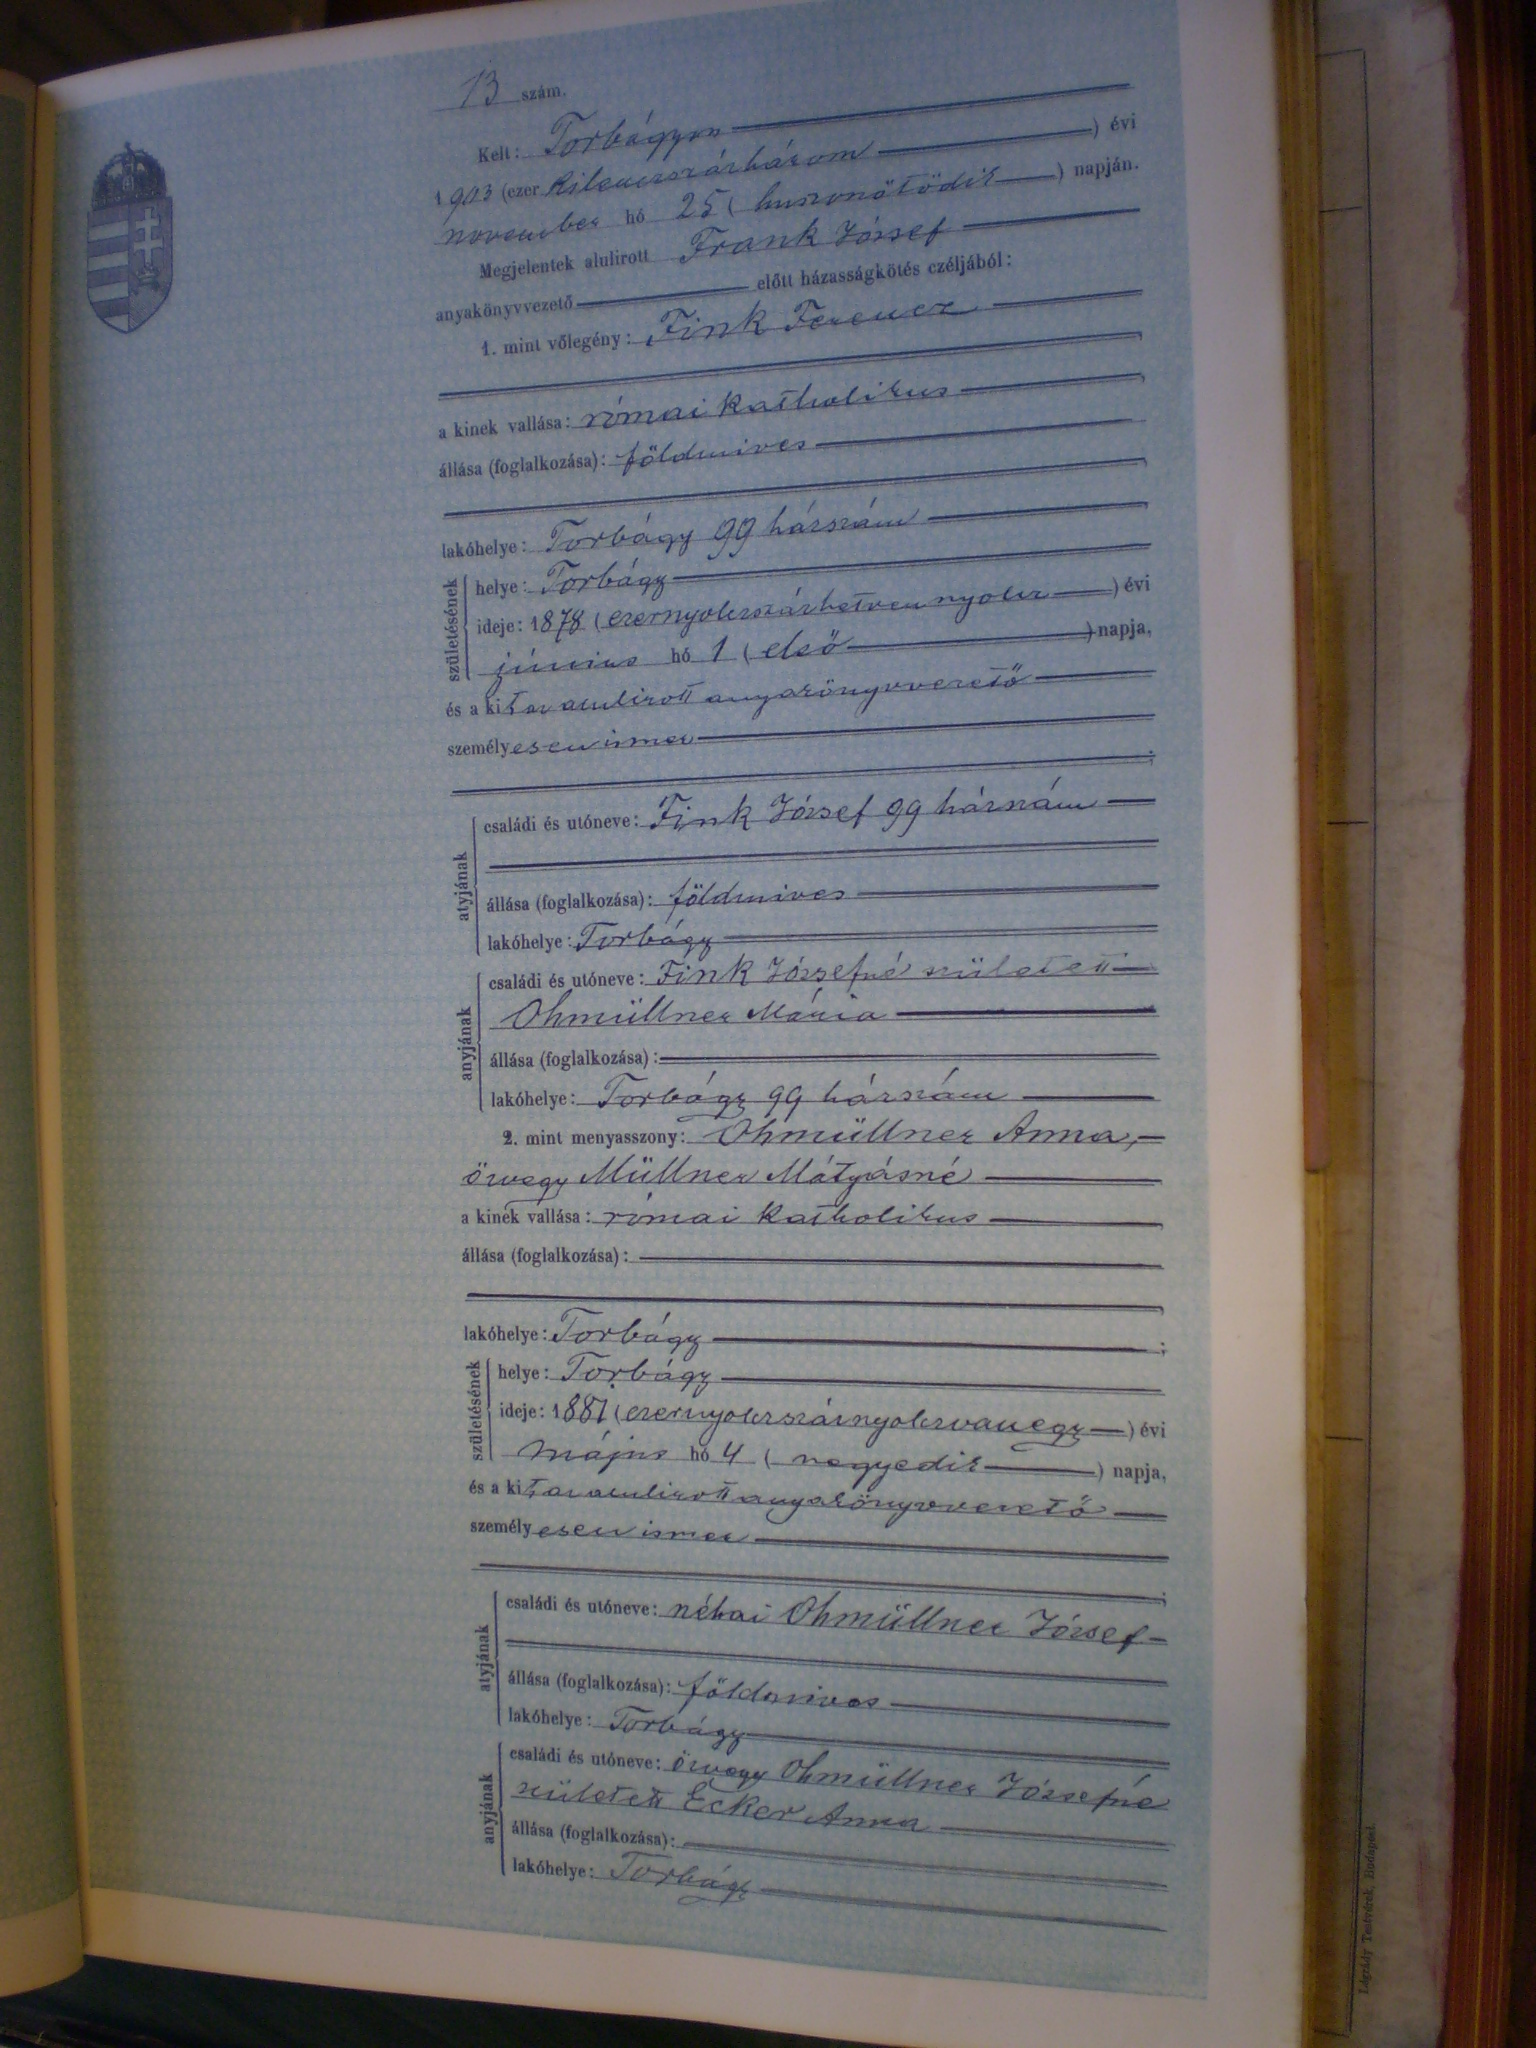 13 szám.
Kelt: Torbágyon
1903 (ezer kilenczszázhárom) évi
november hó 25 (huszonötödik) napján.
Megjelentek alulirott Frank József
anyakönyvvezető előtt házasságkötés czéljából:
1. mint vőlegény: Fink Ferencz
a kinek vallása: római katholikus
állása (foglalkozása): földmives
lakóhelye: Torbágy 99 házszám
születésének
helye: Torbágy
ideje: 1878 (ezernyolczszázhetvennyolcz) évi
június hó 1 (első) napja,
és a kit az alulirott anyakönyvvezető
személyesen ismer
;
atyjának
családi és utóneve: Fink József 99 házszám
állása (foglalkozása): földmives
lakóhelye: Torbágy
anyjának
családi és utóneve: Fink Józsefné született
Ohmüllner Mária
állása (foglalkozása):
lakóhelye: Torbágy 99 házszám
2. mint menyasszony: Ohmüllner Anna,
özvegy Müllner Mátyásné
a kinek vallása: római katholikus
állása (foglalkozása):
lakóhelye: Torbágy ;
születésének
helye: Torbágy
ideje: 1881 (ezernyolczszáznyolczvanegy) évi
május hó 4 (negyedik) napja,
és a kit az alulirott anyakönyvvezető
személyesen ismer
;
atyjának
családi és utóneve: néhai Ohmüllner József
állása (foglalkozása): földmives
lakóhelye: Torbágy
anyjának
családi és utóneve: özvegy Ohmüllner Józsefné
született Ecker Anna
állása (foglalkozása):
lakóhelye: Torbágy
Légrády Testvérek, Budapest.